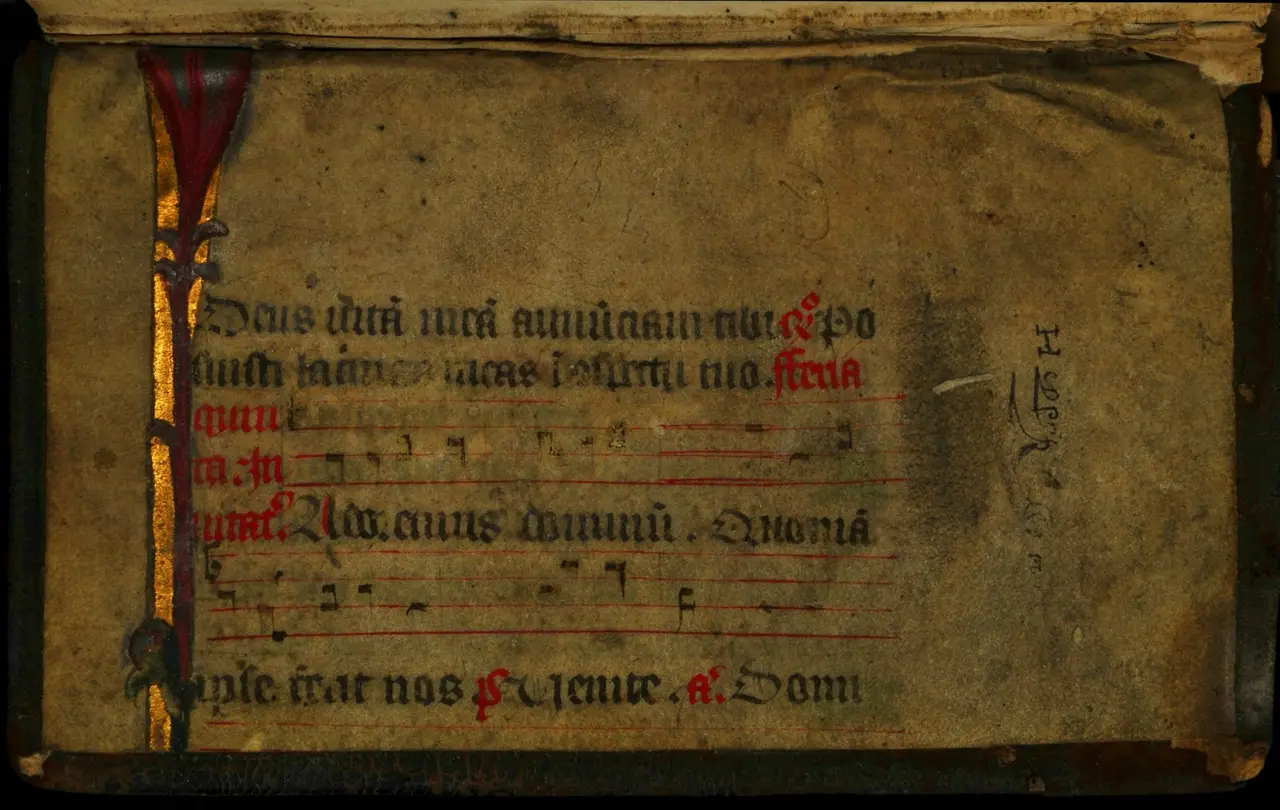 Deus vitā meā annūciaui tibi R̄ Po
suisti lacrimas meas ī ꝯspectu tuo. feria
quin
ta. In
uitat̄. Ado. emus dominū. Quoniā
ipse fecit nos ps Uenite. a. Domi